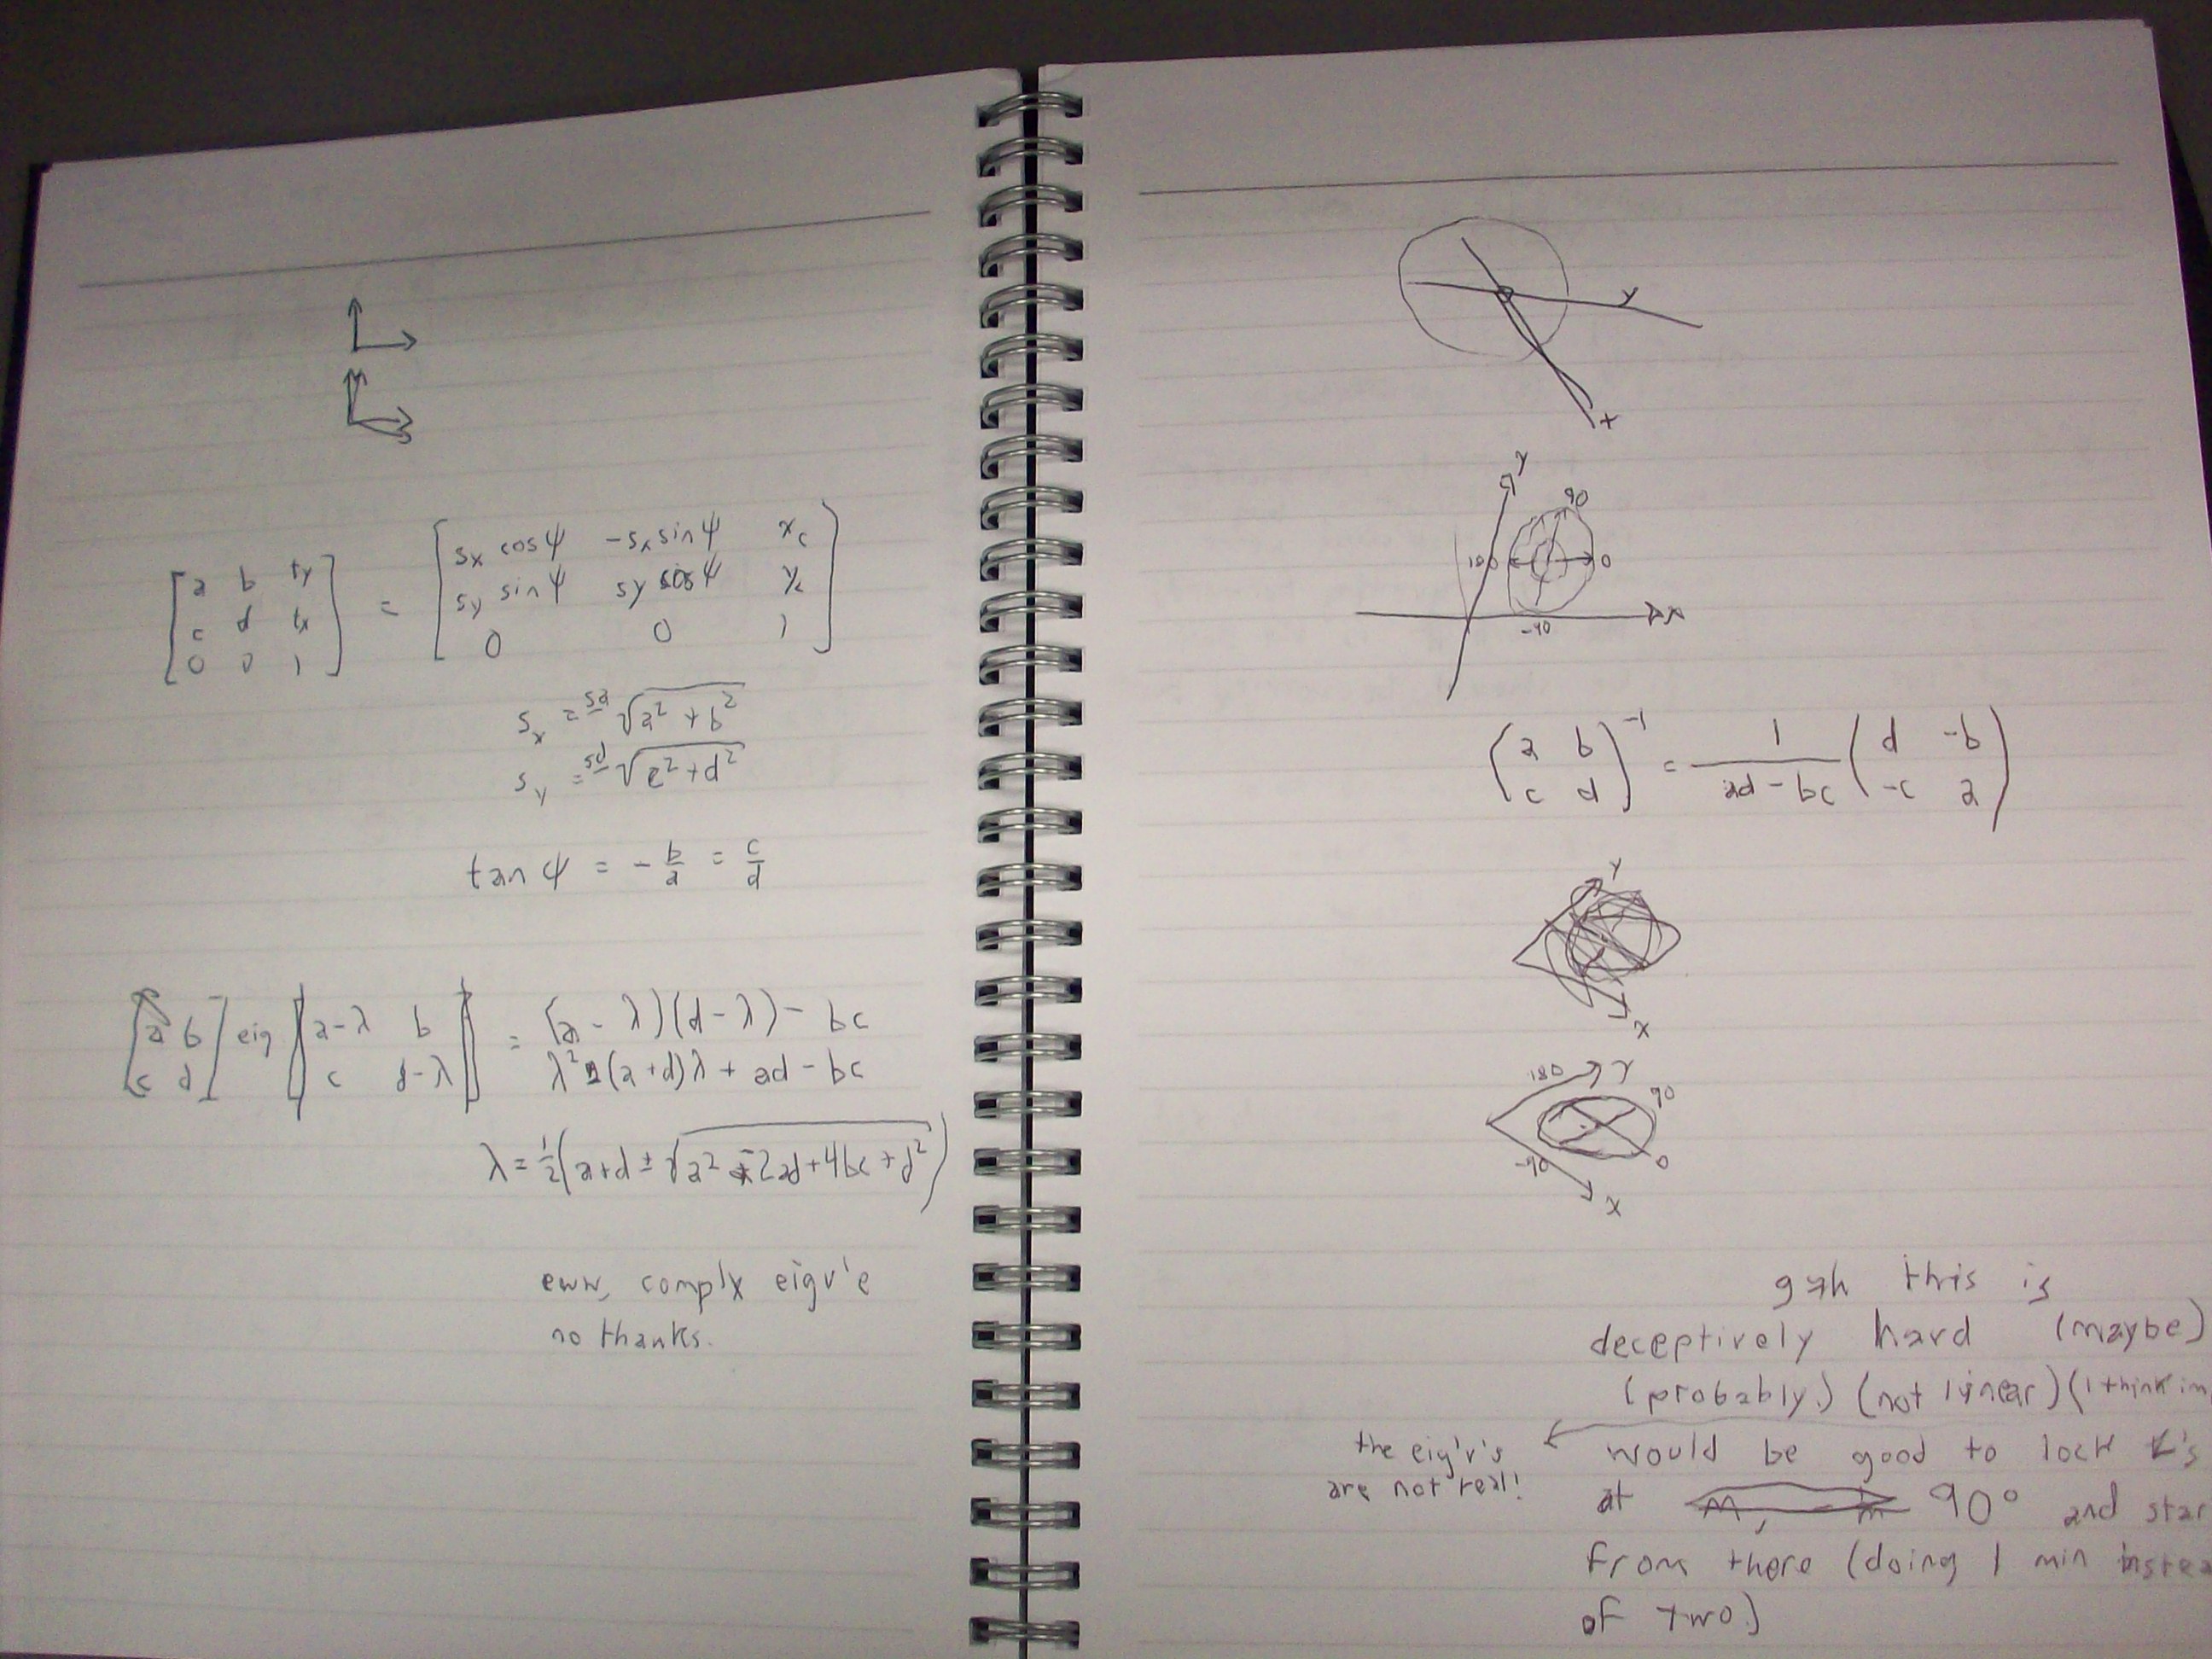 [a b ty] = [sx cos ψ -sx sin ψ xc]
[c d tx] [sy sin ψ sy cos ψ yc]
[0 0 1] [0 0 1]
sx = sa √(a² + b²)
sy = sd √(c² + d²)
tan ψ = - b/a = c/d
[a b] eig |a-λ b| = (a - λ)(d - λ) - bc
[c d] |c d-λ| λ² - (a+d)λ + ad - bc
λ = ½(a+d ± √(a² - 2ad + 4bc + d²))
eww, complx eigv'e
no thanks.
y
x
y
90
180 0
x
-90
(a b)⁻¹ = 1/(ad - bc) (d -b)
(c d) (-c a)
y
x
180 y
90
-90 0
x
gah this is
deceptively hard (maybe)
(probably.) (not linear) (I think im
the eig'v's
are not real!
would be good to lock ∠'s
at 90° and star
from there (doing 1 min instea
of two.)